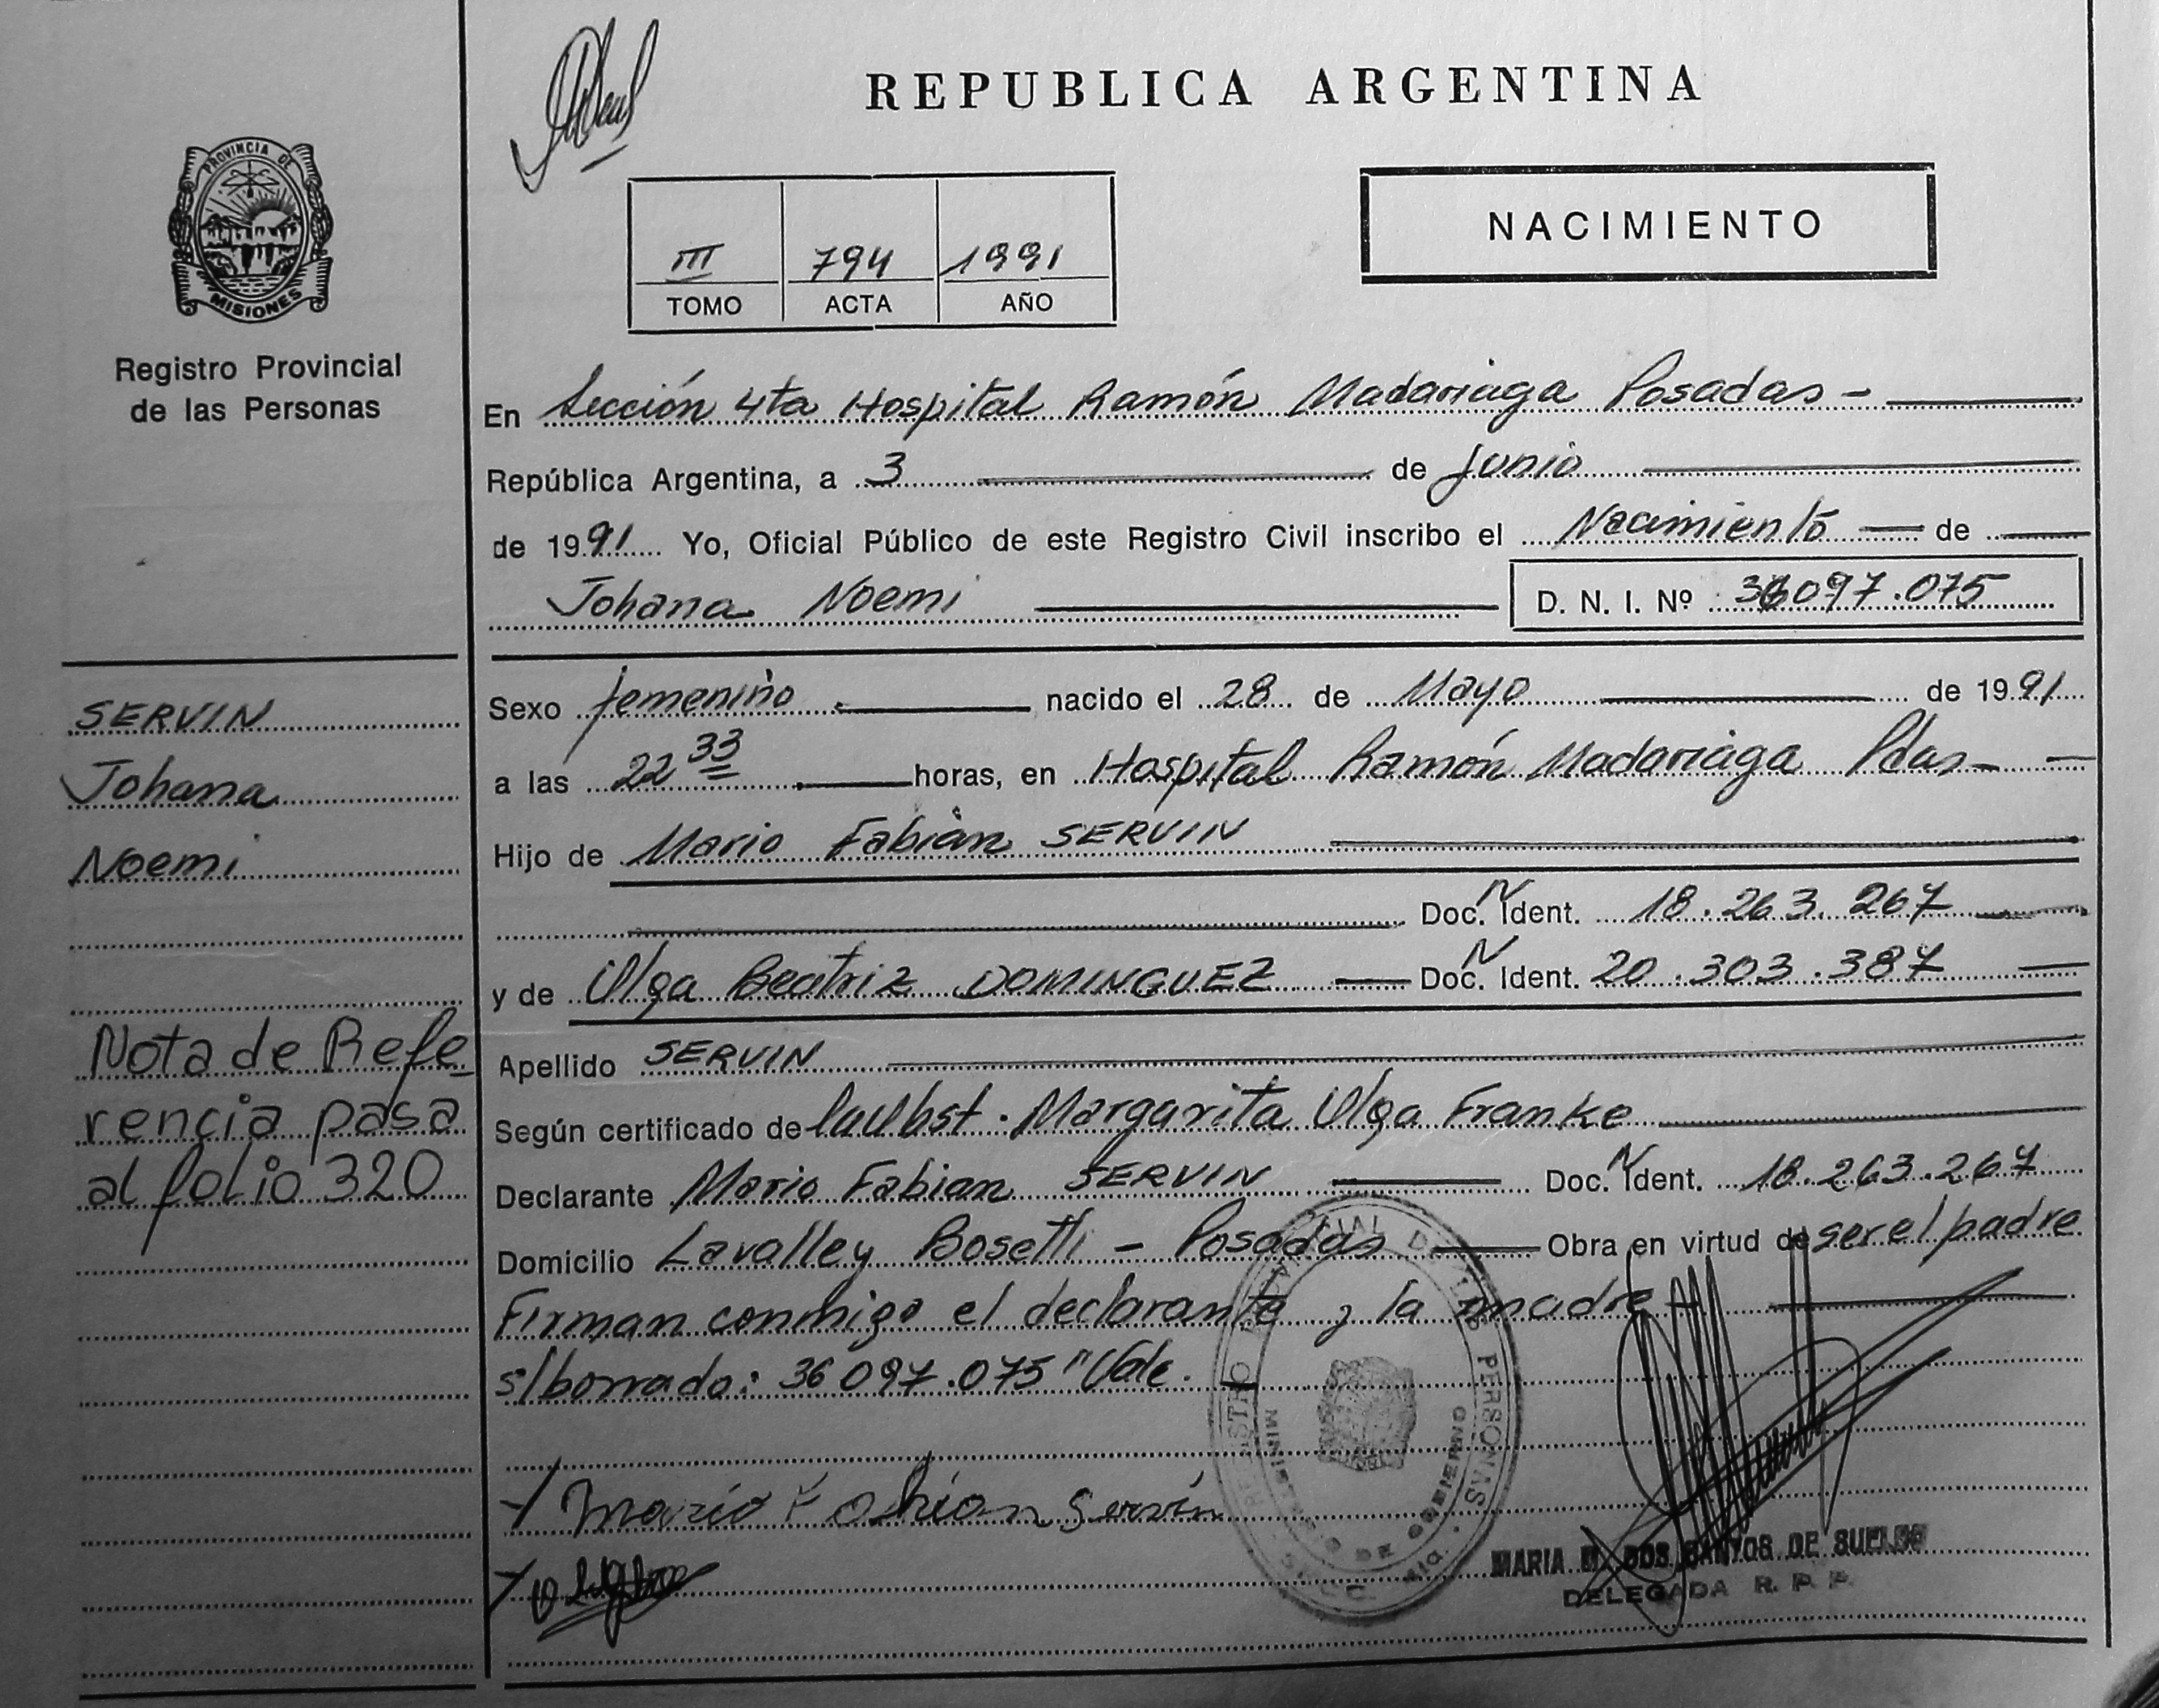 REPUBLICA ARGENTINA
PROVINCIA DE
MISIONES
Registro Provincial
de las Personas
III 794 1991
TOMO ACTA AÑO
NACIMIENTO
En Sección 4ta Hospital Ramón Madariaga Posadas -
República Argentina, a 3 de Junio
de 1991 Yo, Oficial Público de este Registro Civil inscribo el Nacimiento de
Johana Noemi D. N. I. Nº 36097.075
SERVIN
Johana
Noemi
Nota de Refe
rencia pasa
al folio 320
Sexo femenino nacido el 28 de Mayo de 1991
a las 22 33 horas, en Hospital Ramón Madariaga Pdas -
Hijo de Mario Fabián SERVIN
Doc. N Ident. 18.263.267
y de Olga Beatriz DOMINGUEZ Doc. N Ident. 20.303.387
Apellido SERVIN
Según certificado de la Obst. Margarita Olga Franke
Declarante Mario Fabian SERVIN Doc. N Ident. 18.263.267
Domicilio Lavalley Bosetti - Posadas Obra en virtud de ser el padre
Firman conmigo el declarante y la madre -
s/borrado: 36097.075 "Vale.
Mario Fabian Servin
PERSONAS
MINISTERIO DE GOBIERNO
MARIA M. DOS SANTOS DE SUELDO
DELEGADA R. P. P.